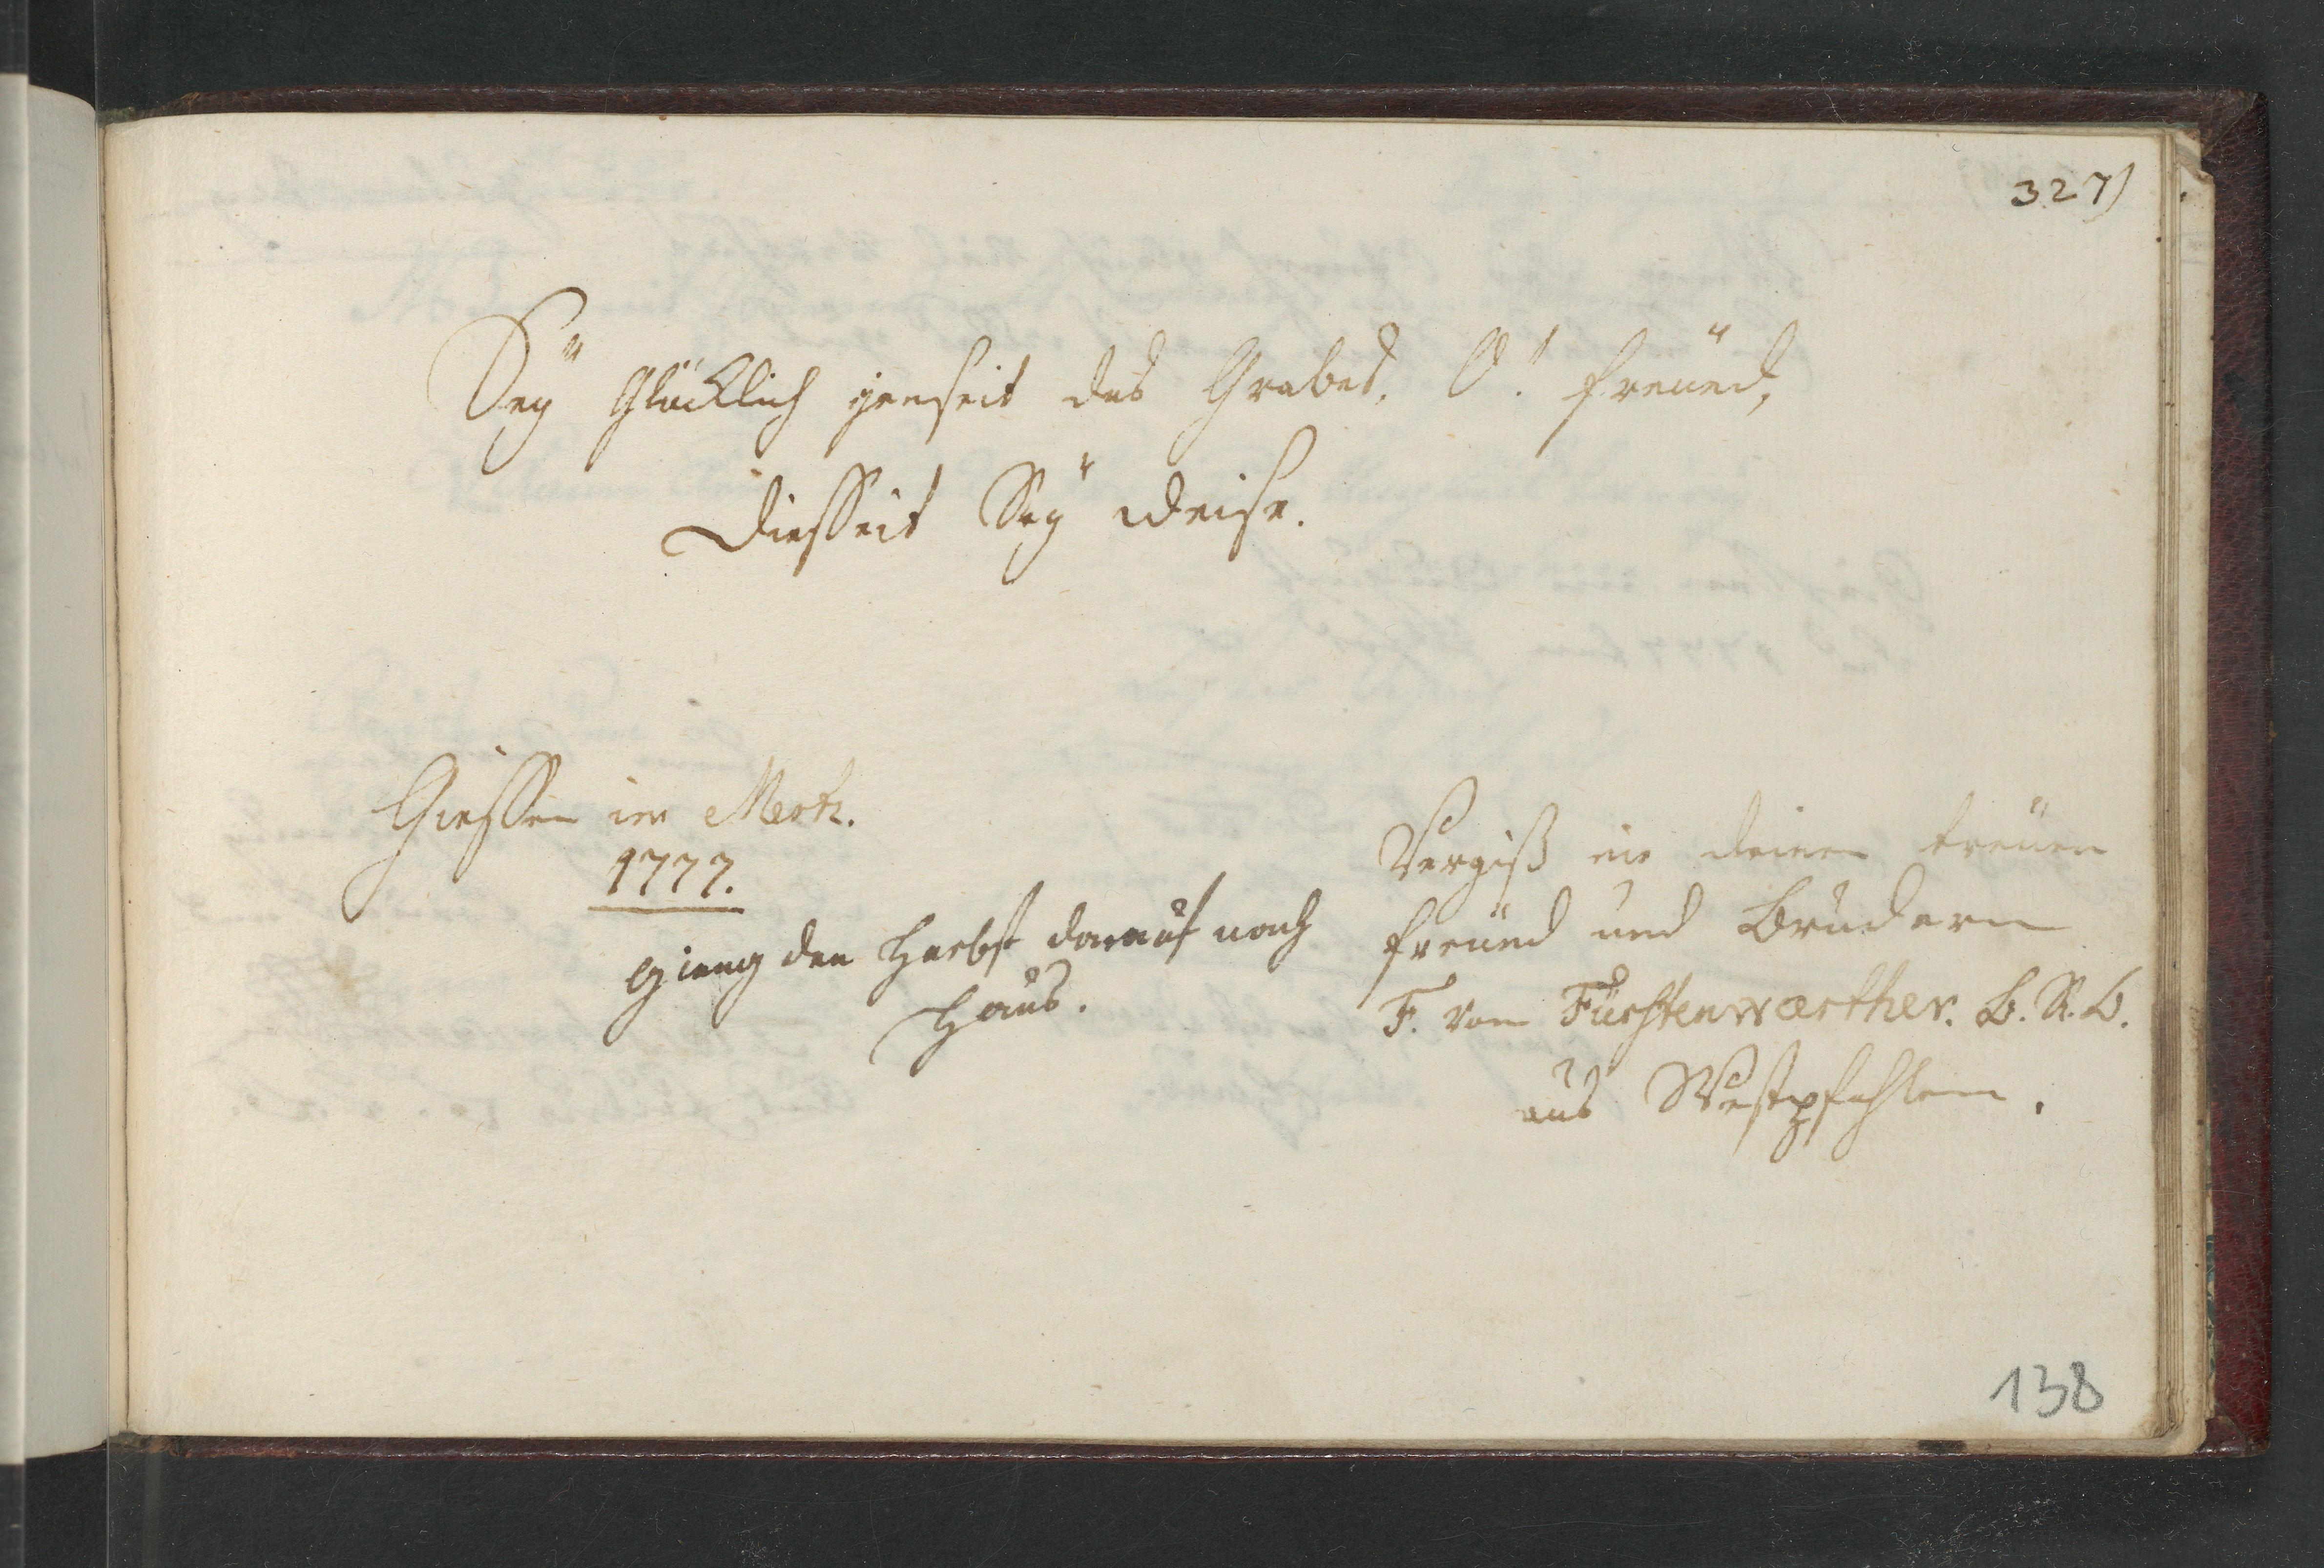 327)
Seÿ Glücklich jenseit des Grabes, O! freünd,
Diesseit Seÿ Weise.
Giessen im Mertz.
1777.
gieng den Herbst darauf nach
Haus.
Vergiß nie deinen treüen
freünd und Brudern
F. von Fürstenwaerther. B. R. B.
aus Westpfahlen.
138